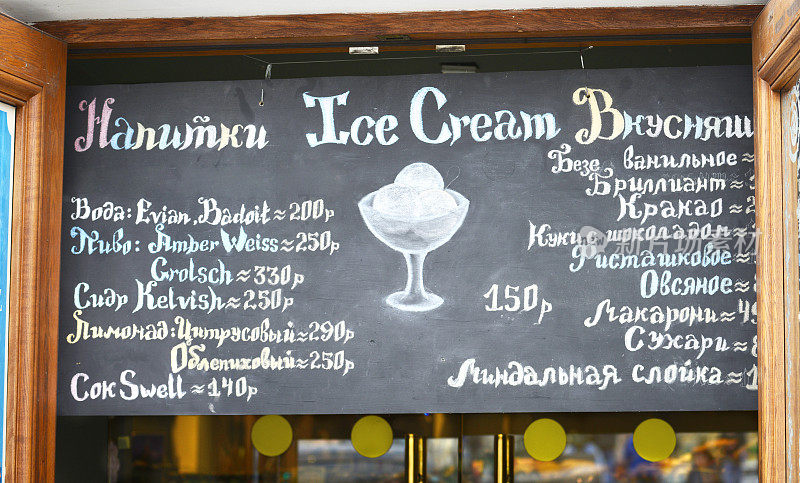 Напитки
Вода: Evian, Badoit ≈ 200р
Пиво: Amber Weiss ≈ 250р
Grolsch ≈ 330р
Сидр Kelvish ≈ 250р
Лимонад: Цитрусовый ≈ 290р
Облепиховый ≈ 250р
Сок Swell ≈ 140р
Ice Cream
150р
Вкусняш
Безе ванильное ≈
Бриллиант ≈
Кракао ≈ 2
Куки с шоколадом ≈
Фисташковое ≈
Овсяное ≈
Макарони ≈ 4
Сухари ≈
Миндальная слойка ≈ 1